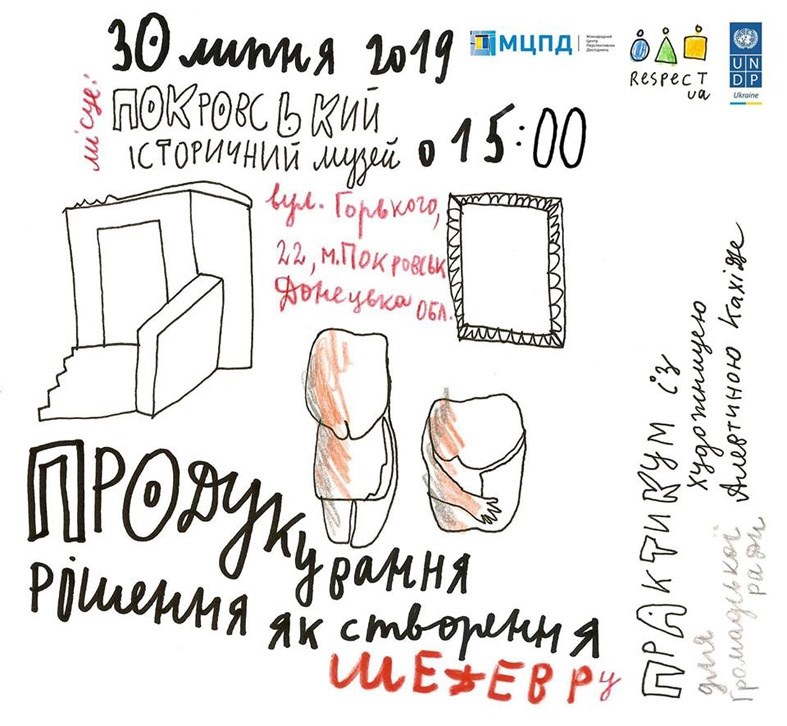 30 липня 2019
МЦПД
Міжнародний
Центр
Перспективних
Досліджень
Respect
ua
UN
DP
Ukraine
місце:
ПОКРОВСЬКИЙ
ІСТОРИЧНИЙ музей о 15:00
вул. Горького,
22, м. Покровськ
Донецька обл.
ПРОДУКУвання
рішення як створення
ШЕДЕВРу
ПРАКТИКУМ із
художницею
Алевтиною Кахідзе
для
Громадської
ради